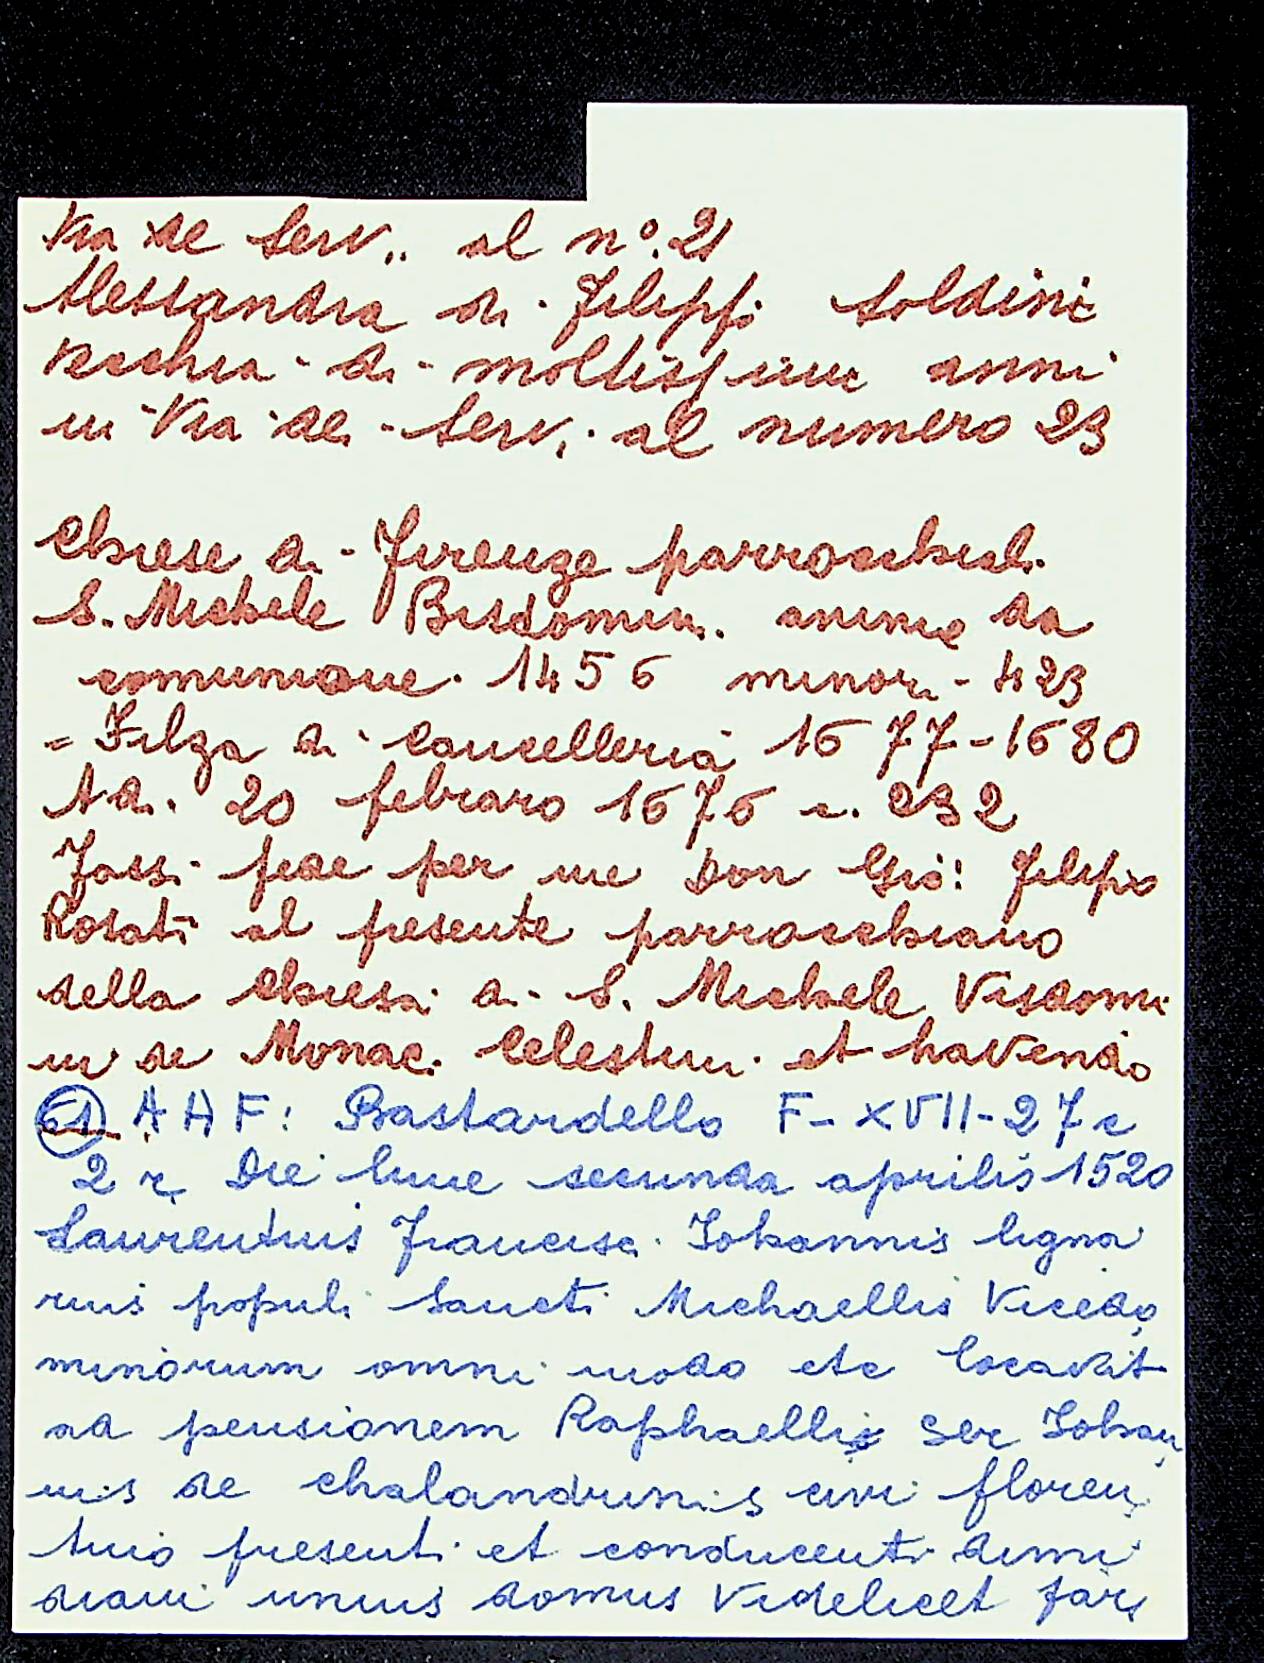 Via de Serv.. al n° 21
Alessandra di Filippi Soldini
vecchia di moltissimi anni
in Via dei Servi al numero 23
Chiese di Firenze parrocchiali
S. Michele Bisdomini anime da
comunione 1456 minori 423
= Filza di Cancelleria 1677-1680
Adi 20 febraro 1676 c. 232
Fassi fede per me Don Gio: Filippo
Rosati al presente parrocchiano
della Chiesa di S. Michele Visdomi
ni de Monac. Celestini et havendo
61) AHF: Bastardello F-XVII-27 c
2 r Die lune secunda aprilis 1520
Laurentius Francisci Iohannis ligna
rius populi Sancti Michaellis Vicedo
minorum omni modo etc locavit
ad pensionem Raphaellis Ser Iohan
nis de chalandrinis civi floren
tino presenti et conducenti dimi
diam unius domus Videlicet pars